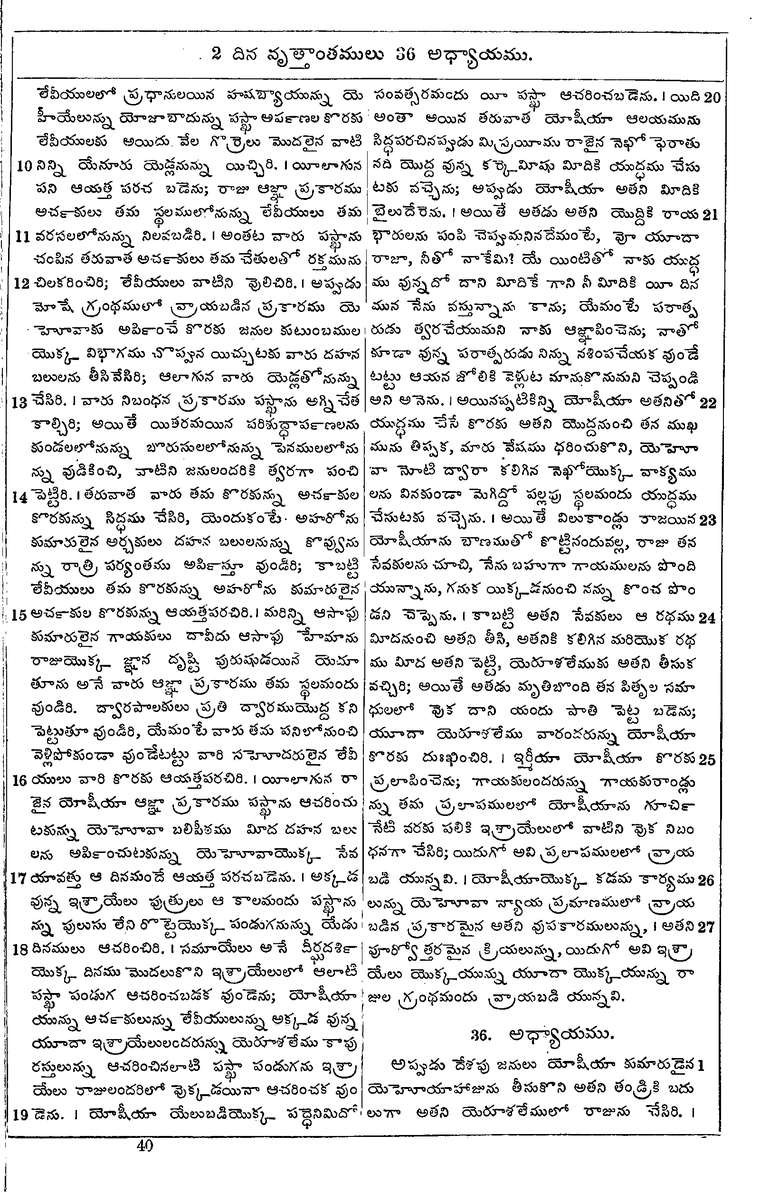 2 దిన వృత్తాంతములు 36 అధ్యాయము.
లేవీయులలో ప్రధానులయిన హషబ్యాయున్ను యె
హీయేలున్ను యోజాబాదున్ను పస్ఖా అపర్ణల కొరకు
లేవీయులకు అయిదు వేల గొర్రెలు మొదలైన వాటి
10 నిన్ని యేనూరు యెడ్లనున్ను యిచ్చిరి. । యీలాగున
పని ఆయత్త పరచ బడెను; రాజు ఆజ్ఞా ప్రకారము
అర్చకులు తమ స్థలములోనున్ను లేవీయులు తమ
11 వరసలలోనున్ను నిలవబడిరి. । అంతట వారు పస్ఖాను
చంపిన తరువాత అర్చకులు తమ చేతులతో రక్తమును
12 చిలకరించిరి; లేవీయులు వాటిని వొలిచిరి. । అప్పుడు
మోషే గ్రంథములో వ్రాయబడిన ప్రకారము యె
హోవాకు అర్పించే కొరకు జనుల కుటుంబముల
యొక్క విభాగము చొప్పున యిచ్చుటకు వారు దహన
బలులను తీసివేసిరి; ఆలాగున వారు యెడ్లతోనున్ను
13 చేసిరి. । వారు నిబంధన ప్రకారము పస్ఖాను అగ్నిచేత
కాల్చిరి; అయితే యితరమయిన పరిశుద్ధార్పణలను
కుండలలోనున్ను బొరుసులలోనున్ను పెనములలోను
న్ను వుడికించి, వాటిని జనులందరికి త్వరగా పంచి
14 పెట్టిరి. । తరువాత వారు తమ కొరకున్ను అర్చకుల
కొరకున్ను సిద్ధము చేసిరి, యెందుకంటే అహరోను
కుమారులైన అర్చకులు దహన బలులనున్ను కొవ్వును
న్ను రాత్రి పర్యంతము అర్పిస్తూ వుండిరి; కాబట్టి
లేవీయులు తమ కొరకున్ను అహరోను కుమారులైన
15 అర్చకుల కొరకున్ను ఆయత్తపరచిరి. । మరిన్ని ఆసాఫు
కుమారులైన గాయకులు దావీదు ఆసాఫు హేమాను
రాజుయొక్క జ్ఞాన దృష్టి పురుషుడయిన యెదూ
తూను అనే వారు ఆజ్ఞా ప్రకారము తమ స్థలమందు
వుండిరి. ద్వారపాలకులు ప్రతి ద్వారముయొద్ద కని
పెట్టుతూ వుండిరి, యేమంటే వారు తమ పనిలోనుంచి
వెళ్లిపోకుండా వుండేటట్టు వారి సహోదరులైన లేవీ
16 యులు వారి కొరకు ఆయత్తపరచిరి. । యీలాగున రా
జైన యోషీయా ఆజ్ఞా ప్రకారము పస్ఖాను ఆచరించు
టకున్ను యెహోవా బలిపీఠము మీద దహన బలు
లను అర్పించుటకున్ను యెహోవాయొక్క సేవ
17 యావత్తు ఆ దినమందే ఆయత్త పరచబడెను. । అక్కడ
వున్న ఇశ్రాయేలు పుత్రులు ఆ కాలమందు పస్ఖాను
న్ను పులుసు లేని రొట్టెయొక్క పండుగనున్ను యేడు
18 దినములు ఆచరించిరి. । సమూయేలు అనే దీర్ఘదర్శి
యొక్క దినము మొదలుకొని ఇశ్రాయేలులో ఆలాటి
పస్ఖా పండుగ ఆచరించబడక వుండెను; యోషీయా
యున్ను అర్చకులున్ను లేవీయులున్ను అక్కడ వున్న
యూదా ఇశ్రాయేలులందరున్ను యెరూశలేము కాపు
రస్తులున్ను ఆచరించినలాటి పస్ఖా పండుగను ఇశ్రా
యేలు రాజులందరిలో వొక్కడయినా ఆచరించక వుం
19 డెను. । యోషీయా యేలుబడియొక్క పద్ధెనిమిదో
సంవత్సరమందు యీ పస్ఖా ఆచరించబడెను. । యిది 20
అంతా అయిన తరువాత యోషీయా ఆలయమును
సిద్ధపరచినప్పుడు మిస్రయీము రాజైన నెఖో ఫెరాతు
నది యొద్ద వున్న కర్కెమీషు మీదికి యుద్ధము చేసు
టకు వచ్చెను; అప్పుడు యోషీయా అతని మీదికి
బైలుదేరెను. । అయితే ఆతడు అతని యొద్దికి రాయ 21
భారులను పంపి చెప్పుమనినదేమంటే, వో యూదా
రాజా, నీతో నాకేమి? యే యింటితో నాకు యుద్ధ
ము వున్నదో దాని మీదికే గాని నీ మీదికి యీ దిన
మున నేను వస్తున్నాను కాను; యేమంటే పరాత్ప
రుడు త్వరచేయుమని నాకు ఆజ్ఞాపించెను; నాతో
కూడా వున్న పరాత్పరుడు నిన్ను నశింపచేయక వుండే
టట్టు ఆయన జోలికి వెళ్లుట మానుకొనుమని చెప్పండి
అని అనెను. । అయినప్పటికిన్ని యోషీయా అతనితో 22
యుద్ధము చేసే కొరకు అతని యొద్దనుంచి తన ముఖ
మును తిప్పక, మారు వేషము ధరించుకొని, యెహో
వా నోటి ద్వారా కలిగిన నెఖోయొక్క వాక్యము
లను వినకుండా మెగిద్దో పల్లపు స్థలమందు యుద్ధము
చేసుటకు వచ్చెను. । అయితే విలుకాండ్లు రాజయిన 23
యోషీయాను బాణముతో కొట్టినందువల్ల, రాజు తన
సేవకులను చూచి, నేను బహుగా గాయములను పొంది
యున్నాను, గనుక యిక్కడనుంచి నన్ను కొంచ పొం
డని చెప్పెను. । కాబట్టి అతని సేవకులు ఆ రథము 24
మీదనుంచి అతని తీసి, అతనికి కలిగిన మరియొక రథ
ము మీద అతని పెట్టి, యెరూశలేముకు అతని తీసుక
వచ్చిరి; అయితే అతడు మృతిబొంది తన పితృల సమా
ధులలో వొక దాని యందు పాతి పెట్ట బడెను;
యూదా యెరూశలేము వారందరున్ను యోషీయా
కొరకు దుఃఖించిరి. । ఇర్మీయా యోషీయా కొరకు 25
ప్రలాపించెను; గాయకులందరున్ను గాయకురాండ్లు
న్ను తమ ప్రలాపములలో యోషీయాను గూర్చి
నేటి వరకు పలికి ఇశ్రాయేలులో వాటిని వొక నిబం
ధనగా చేసిరి; యిదుగో అవి ప్రలాపములలో వ్రాయ
బడి యున్నవి. । యోషీయాయొక్క కడమ కార్యము 26
లున్ను యెహోవా న్యాయ ప్రమాణములో వ్రాయ
బడిన ప్రకారమైన అతని వుపకారములున్ను, । అతని 27
పూర్వోత్తరమైన క్రియలున్ను, యిదుగో అవి ఇశ్రా
యేలు యొక్కయున్ను యూదా యొక్కయున్ను రా
జుల గ్రంథమందు వ్రాయబడి యున్నవి.
36. అధ్యాయము.
అప్పుడు దేశపు జనులు యోషీయా కుమారుడైన 1
యెహోయాహాజును తీసుకొని అతని తండ్రికి బదు
లుగా అతని యెరూశలేములో రాజును చేసిరి. ।
40